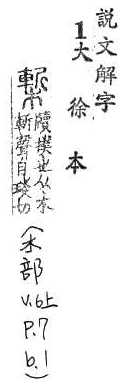 説文解字
1大徐本
槧
牘樸也从木
斬聲自琰切
(木部
V.6上
P.7
b.1)